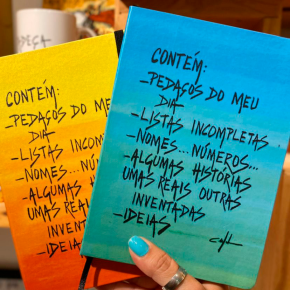 DEÇA
CONTÉM:
-PEDAÇOS DO MEU
DIA
-LISTAS INCOMP
-NOMES...NÚM
-ALGUMAS
UMAS REAI
INVENT
-IDEIAS
CONTÉM:
-PEDAÇOS DO MEU
DIA
-LISTAS INCOMPLETAS
-NOMES...NÚMEROS...
-ALGUMAS HISTÓRIAS
UMAS REAIS OUTRAS
INVENTADAS
-IDEIAS